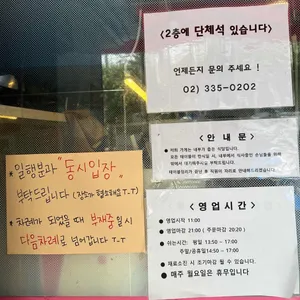 <2층에 단체석 있습니다>
언제든지 문의 주세요 !
02) 335-0202
< 안 내 문 >
일행분과 "동시입장"
부탁드립니다
차례가 되었을 때 부재중 일 시
다음차례로 넘어갑니다 T.T
< 영 업 시 간 >
● 영업시작 11:00
● 영업종료 21:00 ( 주문마감 20:20 )
● 쉬는시간: 평일 13:50 - 17:00
주말/공휴일14:50 - 17:00
● 재료소진 시 조기마감 될 수 있습니다.
● 매주 월요일은 휴무입니다